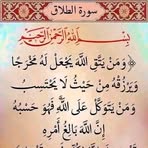 سورة الطلاق
بِسْمِ اللَّهِ الرَّحْمَٰنِ الرَّحِيمِ
﴿ وَمَنْ يَتَّقِ اللَّهَ يَجْعَلْ لَهُ مَخْرَجًا
وَيَرْزُقْهُ مِنْ حَيْثُ لَا يَحْتَسِبُ
وَمَنْ يَتَوَكَّلْ عَلَى اللَّهِ فَهُوَ حَسْبُهُ
إِنَّ اللَّهَ بَالِغُ أَمْرِهِ